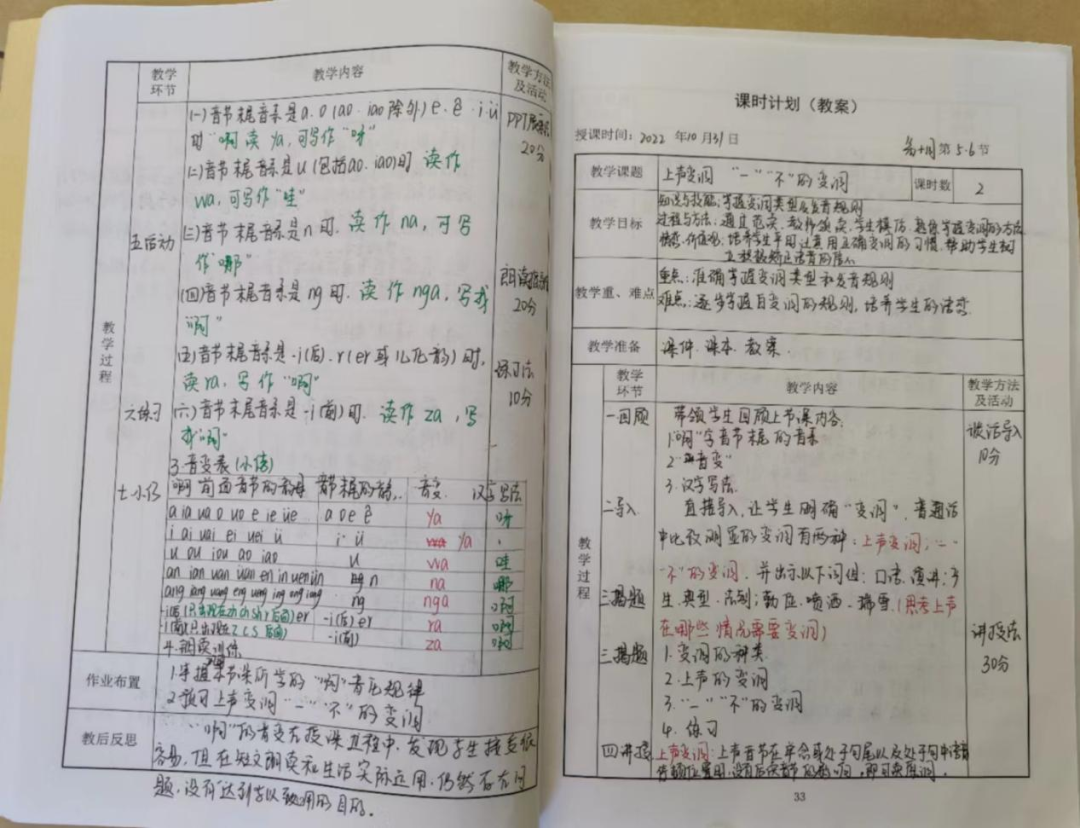 教学环节 教学内容 教学方法及活动
教学过程
五活动
(一)音节尾音素是a.o(ao.iao除外)e.ê.i.ü
时"啊读ya,可写作"呀"
PPT展示法
20分
(二)音节尾音素是u(包括ao.iao)时 读作
wa,可写作"哇"
(三)音节尾音素是n时.读作na,可写
作"哪"
(四)音节尾音素是ng时.读作nga,写成
"啊"
朗读指导
20分
(五)音节尾音素是-i(后).r(er或儿化韵)时,
读ra,写作"啊"
练习法
10分
六练习
(六)音节末尾音素是-i(前)时.读作za,写
成"啊"
3.音变表(小结)
七小结
啊前面音节的韵母 音节尾的音素 音变 汉字写法
a ia ua o uo e ie üe a o e ê ya 呀
i ai uai ei uei ü i ü ya
u ou iou ao iao u wa 哇
an ian uan üan en in uen ün n na 哪
ang iang uang eng ueng ing ong iong ng nga 啊
-i后(只出现在zh ch sh r后面)er -i(后)er ra 啊
-i前(只出现在z c s后面) -i(前) za 啊
4.朗读训练
作业布置
1.掌握本节课所学的"啊"音变规律
2.预习上声变调"一""不"的变调
教后反思
"啊"的音变在授课过程中,发现学生接受很
容易,但在短文朗读和生活实际运用,仍然存在问
题,没有达到学以致用的目的。
课时计划(教案)
授课时间:2022年10月31日 第十周第5.6节
教学课题 上声变调 "一""不"的变调 课时数 2
教学目标
知识与技能:掌握变调类型及发音规则
过程与方法:通过范读.教师领读.学生模仿.熟练掌握变调的方法
情感.价值观:培养学生平时注意用正确变调的习惯.帮助学生树
教学重、难点
重点:准确掌握变调类型和发音规则
难点:逐步掌握自变调的规则,培养学生的语感
教学准备 课件.课本.教案
教学过程
教学环节 教学内容 教学方法及活动
一回顾 带领学生回顾上节课内容:
1."啊"字音节尾的音素
2."音变"
3.汉字写法.
谈话导入
10分
二导入 直接导入,让学生明确"变调".普通话
中比较明显的变调有两种:上声变调;"一"
"不"的变调.并出示以下词组:口语.演讲;
三揭题 生.典型.法制;勤.喷洒.瑞雪.(思考上声
在哪些情况需要变调)
三揭题 1.变调的种类
2.上声的变调
3."一""不"的变调
4.练习
讲授法
30分
四讲授 上声变调:上声音节在单念或处于句尾以及处于句中语音
停顿位置时.没有后续音节的影响.即可读原调.
33